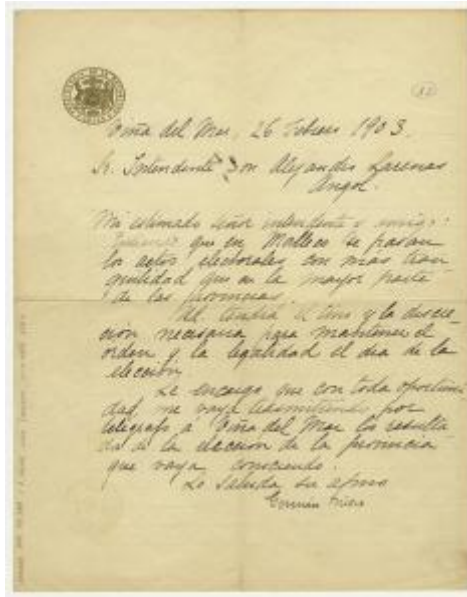 Viña del Mar, 26 Febrero 1903.
Sr. Intendente Don Alejandro Larenas
Angol.
Mi estimado señor intendente y amigo:
que en Malleco se pasaran
los actos electorales con mas tran
quilidad que en la mayor parte
de las provincias.
Ud. tendrá el tino y la discre-
ción necesaria para mantener el
orden y la legalidad el dia de la
elección
Le encargo que con toda oportuni
dad, me vaya trasmitiendo por
telégrafo a Viña del Mar los resulta
dos de la elección de la provincia
que vaya conociendo.
Lo saluda su afmo
Germán Riesco